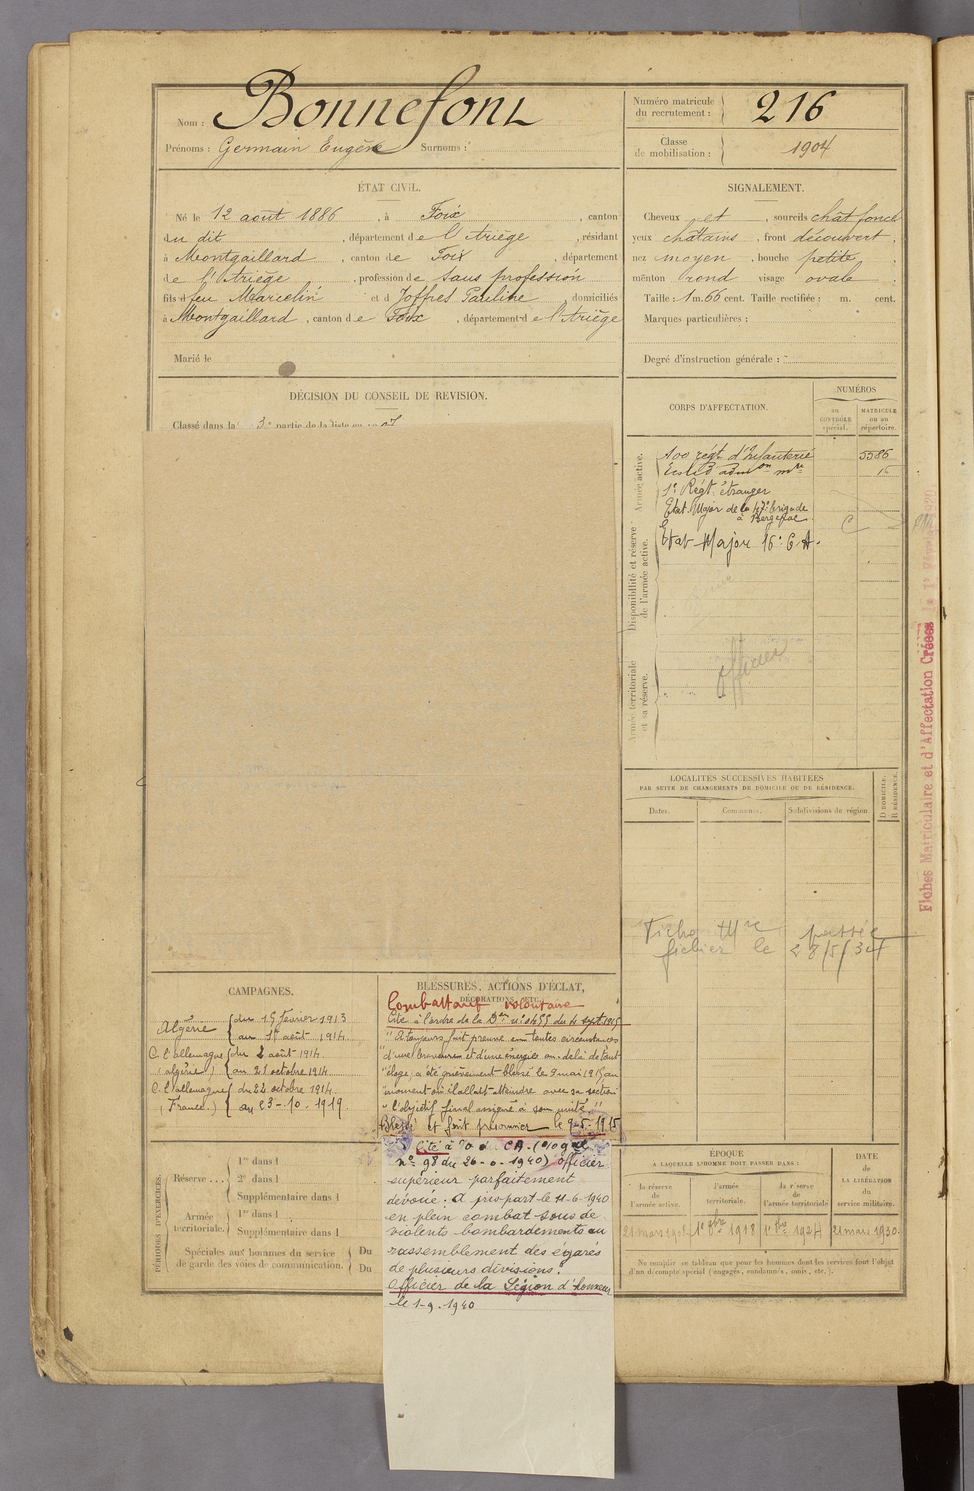 Nom : Bonnefont
Prénoms : Germain Eugène Surnoms :
Numéro matricule du recrutement : 216
Classe de mobilisation : 1904
ÉTAT CIVIL.
Né le 12 août 1886, à Foix, canton
du dit, département de l'Ariège, résidant
à Montgaillard, canton de Foix, département
de l'Ariège, profession de sans profession
fils d feu Marcelin et d Joffres Pauline domiciliés
à Montgaillard, canton de Foix, département de l'Ariège
Marié le
SIGNALEMENT.
Cheveux et, sourcils chât foncé
yeux châtains, front découvert,
nez moyen, bouche petite,
menton rond visage ovale
Taille : 1 m. 66 cent. Taille rectifiée : m. cent.
Marques particulières :
Degré d'instruction générale :
DÉCISION DU CONSEIL DE REVISION.
Classé dans la 3e partie de la liste en 1907
CORPS D'AFFECTATION.
NUMÉROS
au CONTRÔLE spécial.
MATRICULE ou au répertoire.
Armée active.
Disponibilité et réserve de l'armée active.
Armée territoriale et sa réserve.
100 régt d'Infanterie 5586
1er Régt étranger
Etat Major de la 47e brigade
à Bergerac
Etat Major 16e C.A.
officier
LOCALITÉS SUCCESSIVES HABITÉES
PAR SUITE DE CHANGEMENTS DE DOMICILE OU DE RÉSIDENCE.
Dates. Communes. Subdivisions de région
D. DOMICILE. R. RÉSIDENCE.
Fiche Mle passée
fichier le 28/5/34
Fiches Matriculaire et d'Affectation Créées le 1er
CAMPAGNES.
Algérie du 15 février 1913
au 1er août 1914
C. l'allemagne du 2 août 1914
(algérie) au 21 octobre 1914
C. l'allemagne du 22 octobre 1914
(France) au 23-10-1919
BLESSURES, ACTIONS D'ÉCLAT,
DÉCORATIONS, ETC.
Combattant volontaire
Cité à l'ordre de la Don n° 1455 du 4 sept 1915
"A toujours fait preuve en toutes circonstances
"d'une bravoure et d'une énergie au delà de tout
"éloge, a été grièvement blessé le 9 mai 1915 au
"moment où il allait atteindre avec sa section
"l'objectif final assigné à son unité"
Blessé et fait prisonnier le 9-5-1915
Cité à l'O du CA. (O/Ggal
n° 98 du 1940) officier
supérieur parfaitement
dévoué. A pris part le 11-6-1940
en plein combat sous de
violents bombardements au
rassemblement des égarés
de plusieurs divisions.
officier de la Légion d'honneur
le 1-9-1940
PÉRIODES D'EXERCICES.
Réserve....
1re dans l
2e dans l
Supplémentaire dans l
Armée territoriale.
1re dans l
Supplémentaire dans l
Spéciales aux hommes du service
de garde des voies de communication.
Du
Du
ÉPOQUE
A LAQUELLE L'HOMME DOIT PASSER DANS :
la réserve de l'armée active.
l'armée territoriale.
la réserve de l'armée territoriale
DATE de LA LIBÉRATION du service militaire.
1er 8bre 1918 1924 21 mars 1930
Ne remplir ce tableau que pour les hommes dont les services font l'objet
d'un décompte spécial (engagés, condamnés, omis, etc.).